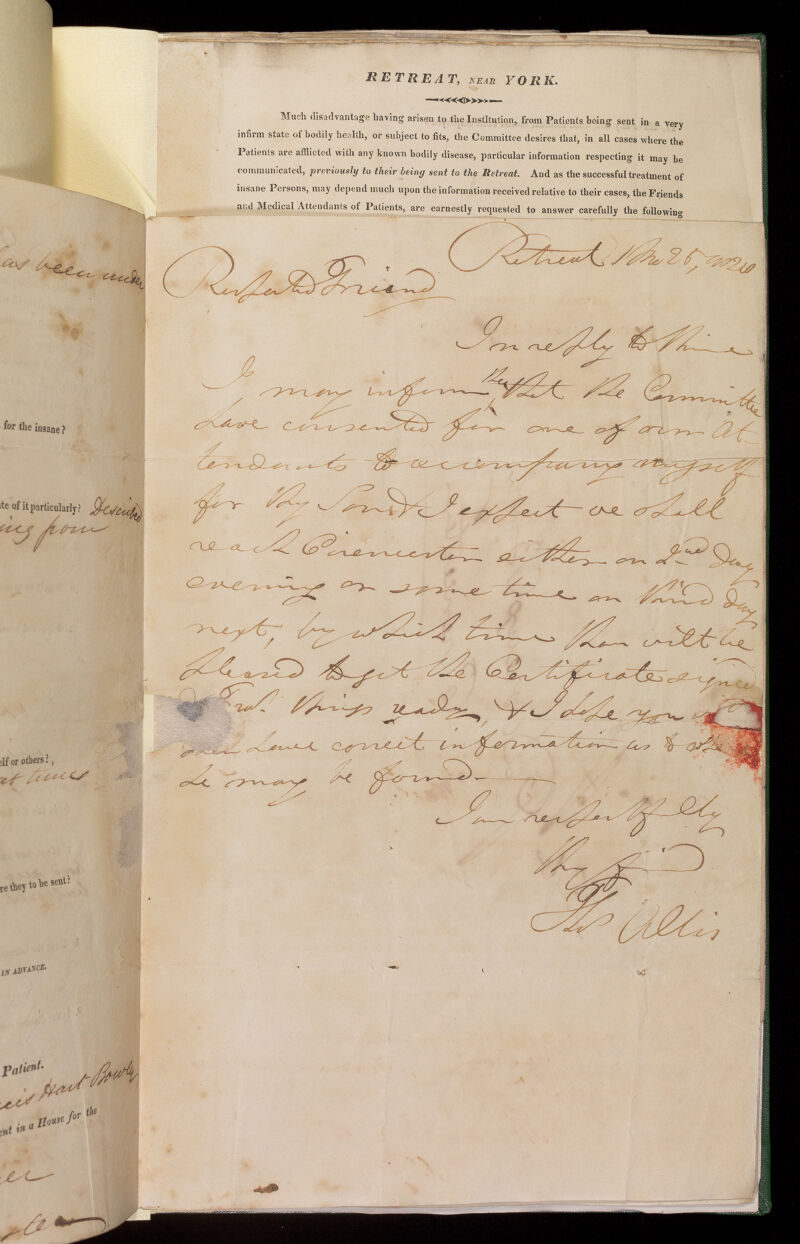 RETREAT, NEAR YORK.
Much disadvantage having arisen to the Institution, from Patients being sent in a very
infirm state of bodily health, or subject to fits, the Committee desires that, in all cases where the
Patients are afflicted with any known bodily disease, particular information respecting it may be
communicated, previously to their being sent to the Retreat. And as the successful treatment of
insane Persons, may depend much upon the information received relative to their cases, the Friends
and Medical Attendants of Patients, are earnestly requested to answer carefully the following
Retreat
Respected Friend
In reply to thine
I may inform thee that the Committee
have consented for one of our At-
tendants to accompany myself
for thy Son & I expect we shall
reach Cirencester either on 2nd day
evening or some time on third day
next, by which time thou wilt be
pleased to get the Certificate signed
things ready, & I hope you
have correct information as to where
he may be found
I am respectfully
thy friend
Thos Allis
has been under
for the insane?
te of it particularly? Described
ing from
elf or others?
at times
re they to be sent?
IN ADVANCE.
Patient.
cis Hart Bowly
ent in a House for the